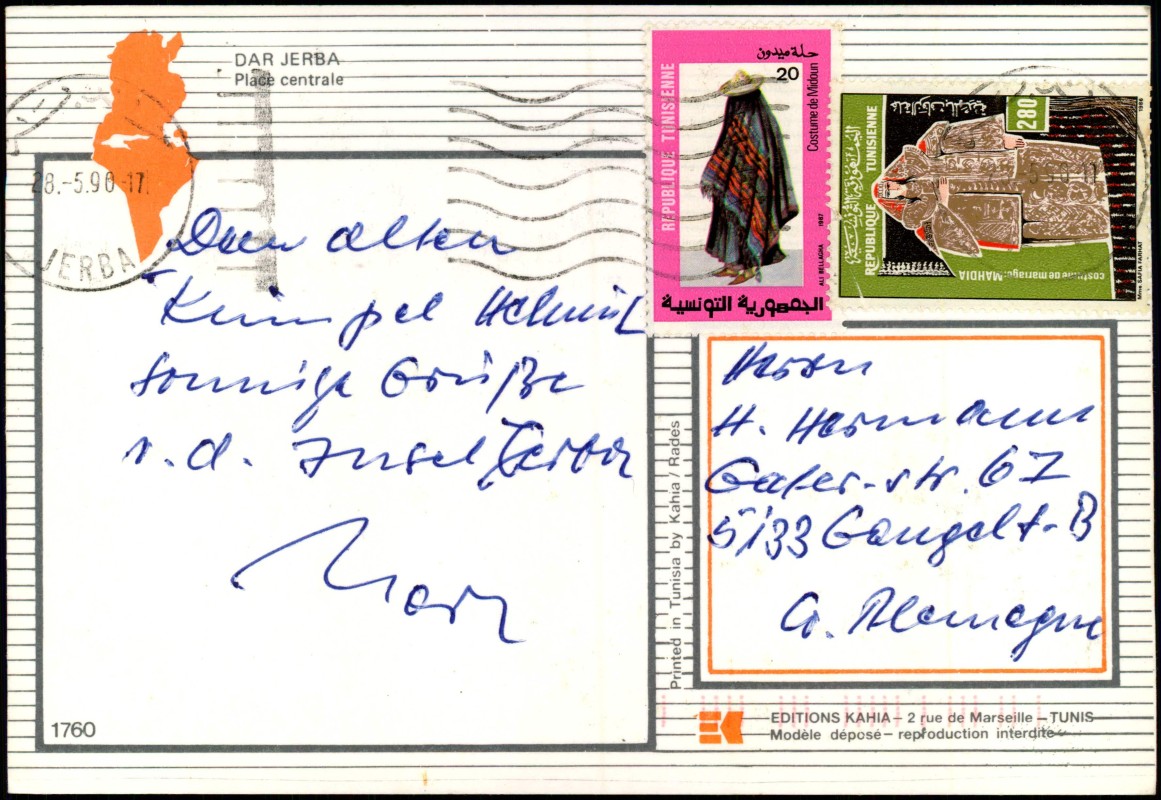 DAR JERBA
Place centrale
28.-5.90-17.
JERBA
Dem alten
Kumpel Helmut
sonnige Grüße
v. d. Insel Jerba
1760
حلة ميدون
20
Costume de Midoun
REPUBLIQUE TUNISIENNE
ALI BELLAGHA 1987
الجمهورية التونسية
280
1986
الجمهورية التونسية
REPUBLIQUE TUNISIENNE
costume de mariage: MAHDIA
Mme. SAFIA FARHAT
Herrn
H. Hermann
str. 67
5133 Gangelt-B
Allemagne
Printed in Tunisia by Kahia / Rades
EDITIONS KAHIA – 2 rue de Marseille – TUNIS
Modèle déposé – reproduction interdite